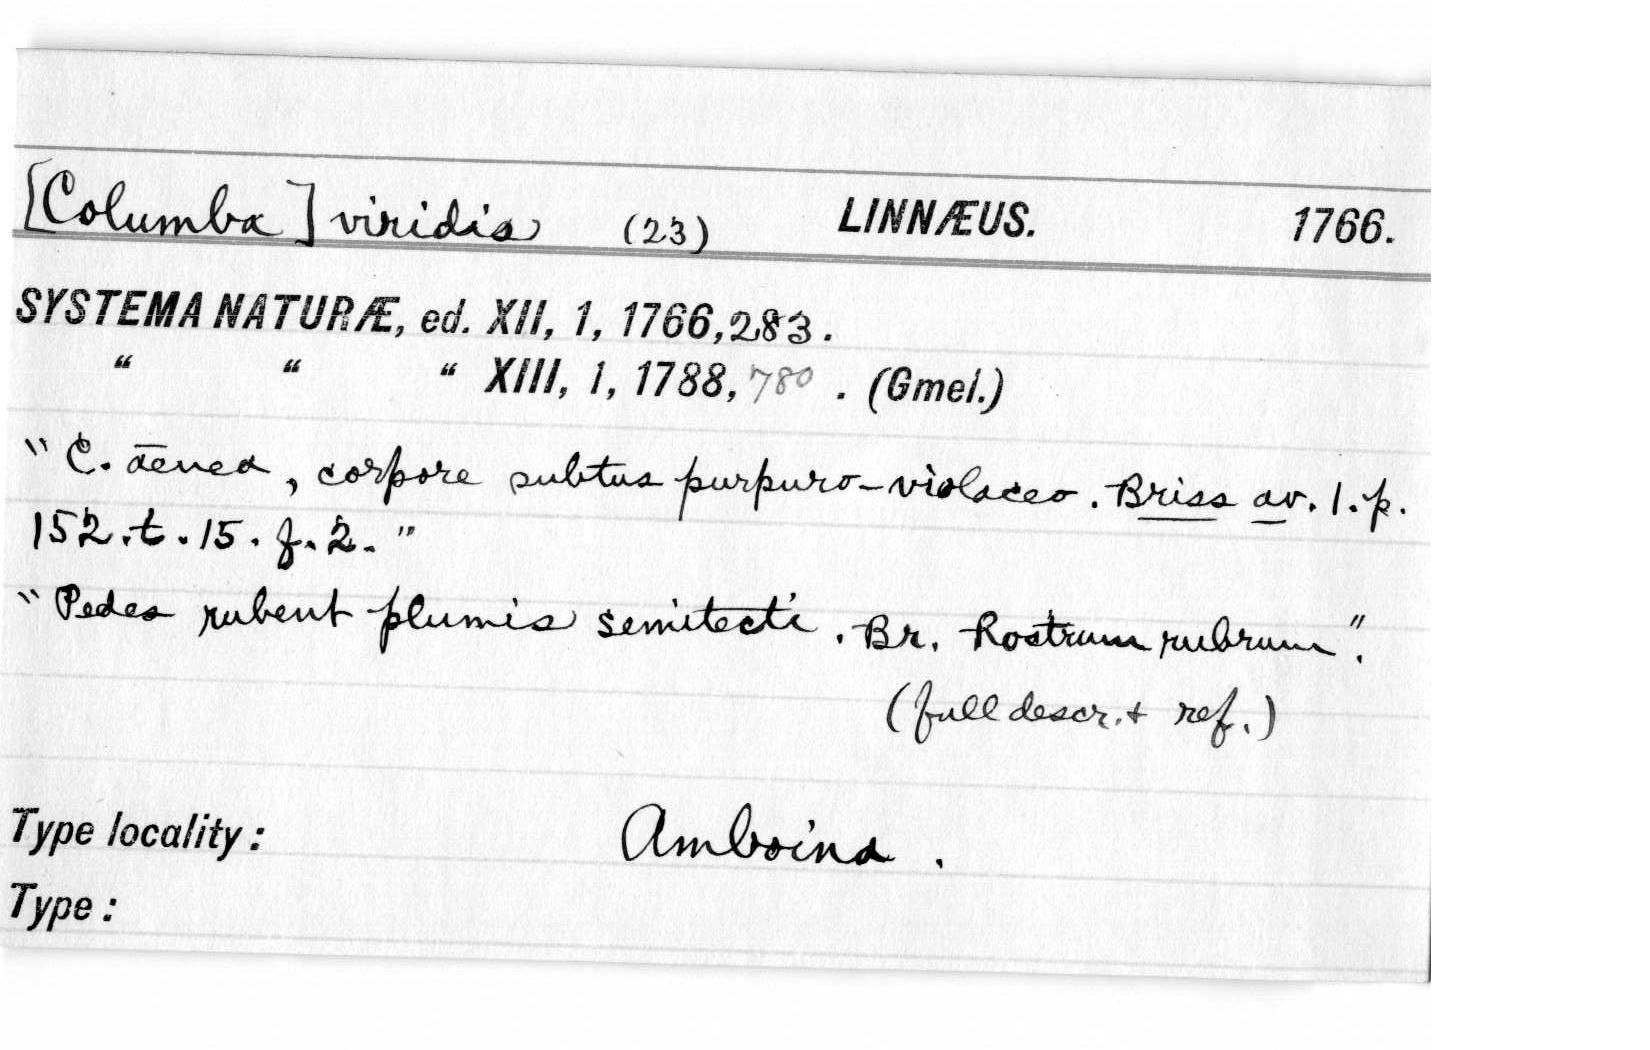 [Columba] viridis (23) LINNÆUS. 1766.
SYSTEMA NATURÆ, ed. XII, 1, 1766, 283.
“ “ “ XIII, 1, 1788, 780. (Gmel.)
"C. aēnea, corpore subtus purpuro-violaceo. Briss av. 1. p.
152. t. 15. f. 2."
"Pedes rubent plumis semitecti. Br. Rostrum rubrum".
(full descr. & ref.)
Type locality: Amboina.
Type: